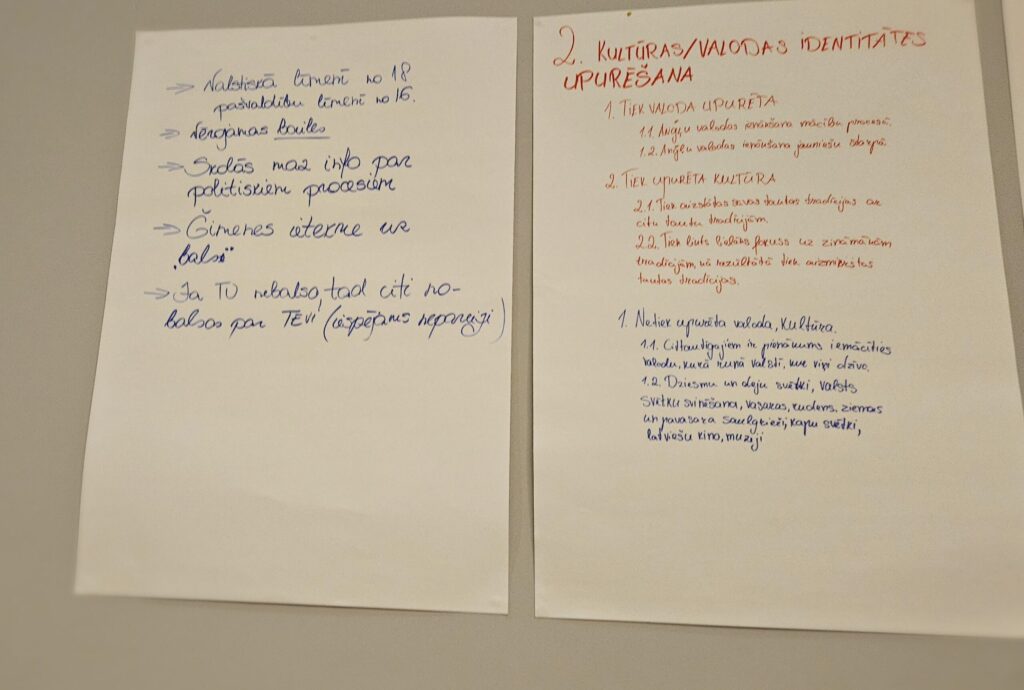 → Valstiskā līmenī no 18
pašvaldību līmenī no 16.
→ Nērgāmas
→ Skolās maz info par
politiskiem procesiem
→ Ģimenes ietekme uz
„balsi"
→ Ja TU nebalso, tad citi no-
balsos par TEVI (iespējams nepareizi)
2. KULTŪRAS/VALODAS IDENTITĀTES
UPURĒŠANA
1. TIEK VALODA UPURĒTA
1.1. Angļu valodas ienākšana mācību procesā.
1.2. Angļu valodas ienākšana jauniešu starpā.
2. TIEK UPURĒTA KULTŪRA
2.1. Tiek aizstātas savas tautas tradīcijas ar
citu tautu tradīcijām.
2.2. Tiek likts lielāks fokuss uz zināmākām
tradīcijām, kā rezultātā tiek aizmirstas
tautas tradīcijas.
1. Netiek upurēta valoda, kultūra.
1.1. Cittautiešiem ir pienākums iemācīties
valodu, kurā runā valstī, kur viņi dzīvo.
1.2. Dziesmu un deju svētki, valsts
svētku svinēšana, vasaras, rudens, ziemas
un pavasara saulgrieži, kapu svētki,
latviešu kino, muzeji